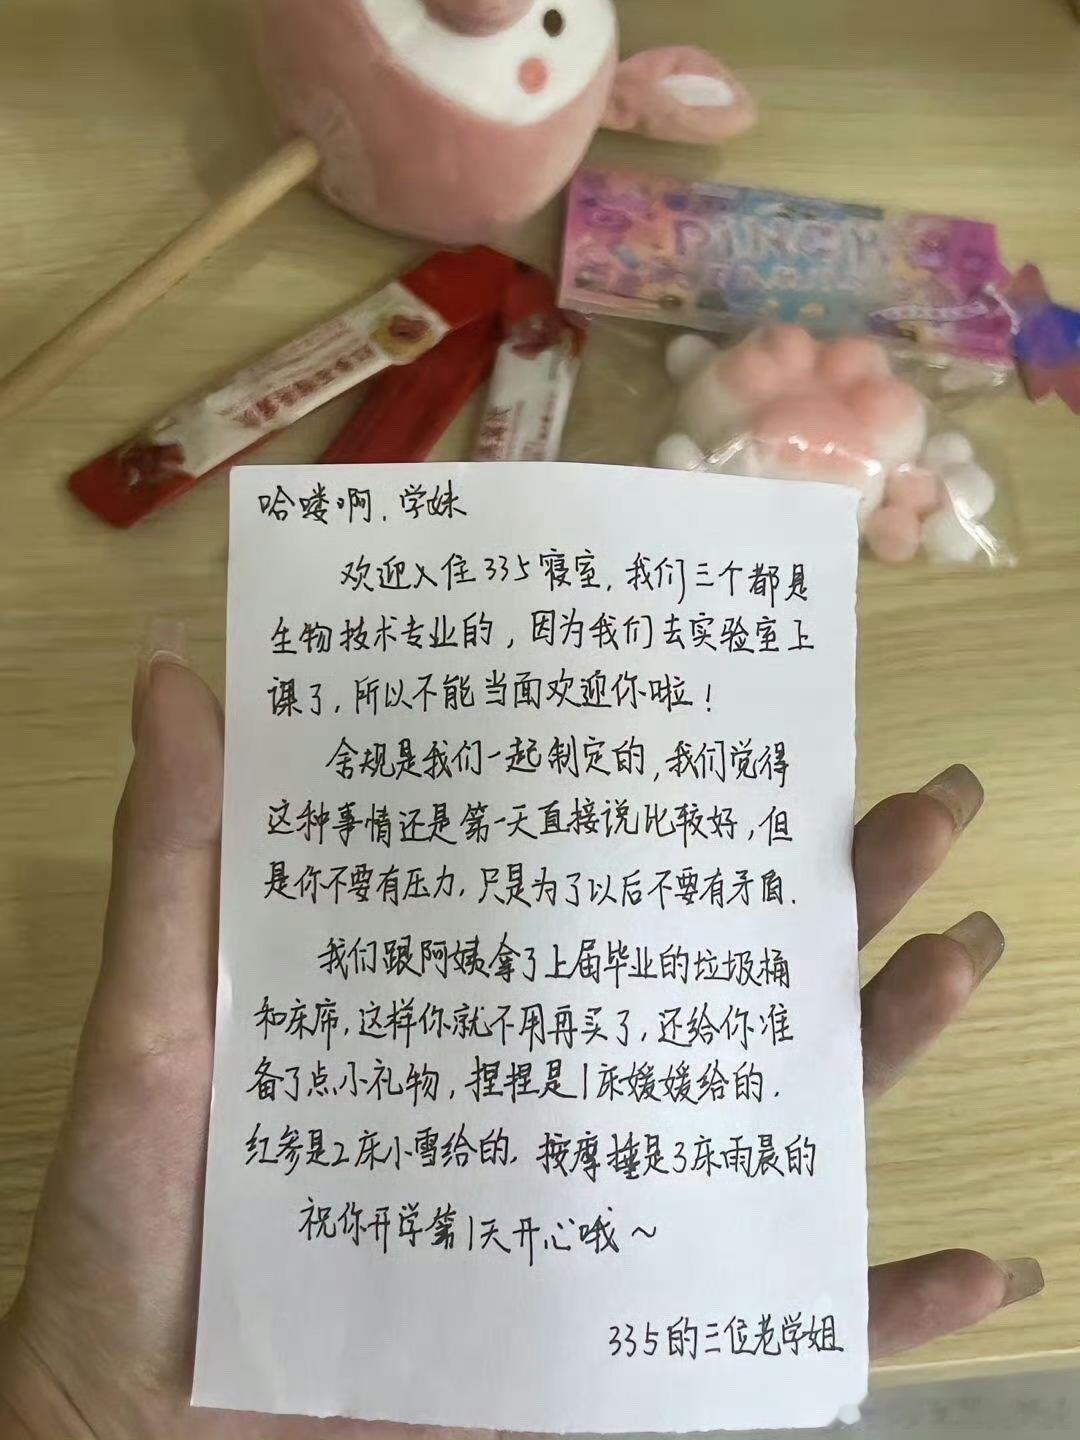 哈喽啊，学妹
欢迎入住335寝室，我们三个都是
生物技术专业的，因为我们去实验室上
课了，所以不能当面欢迎你啦！
舍规是我们一起制定的，我们觉得
这种事情还是第一天直接说比较好，但
是你不要有压力，只是为了以后不要有矛盾.
我们跟阿姨拿了上届毕业的垃圾桶
和床席，这样你就不用再买了，还给你准
备了点小礼物，捏捏是1床媛媛给的.
红参是2床小雪给的，按摩捶是3床雨晨的
祝你开学第1天开心哦～
335的三位老学姐